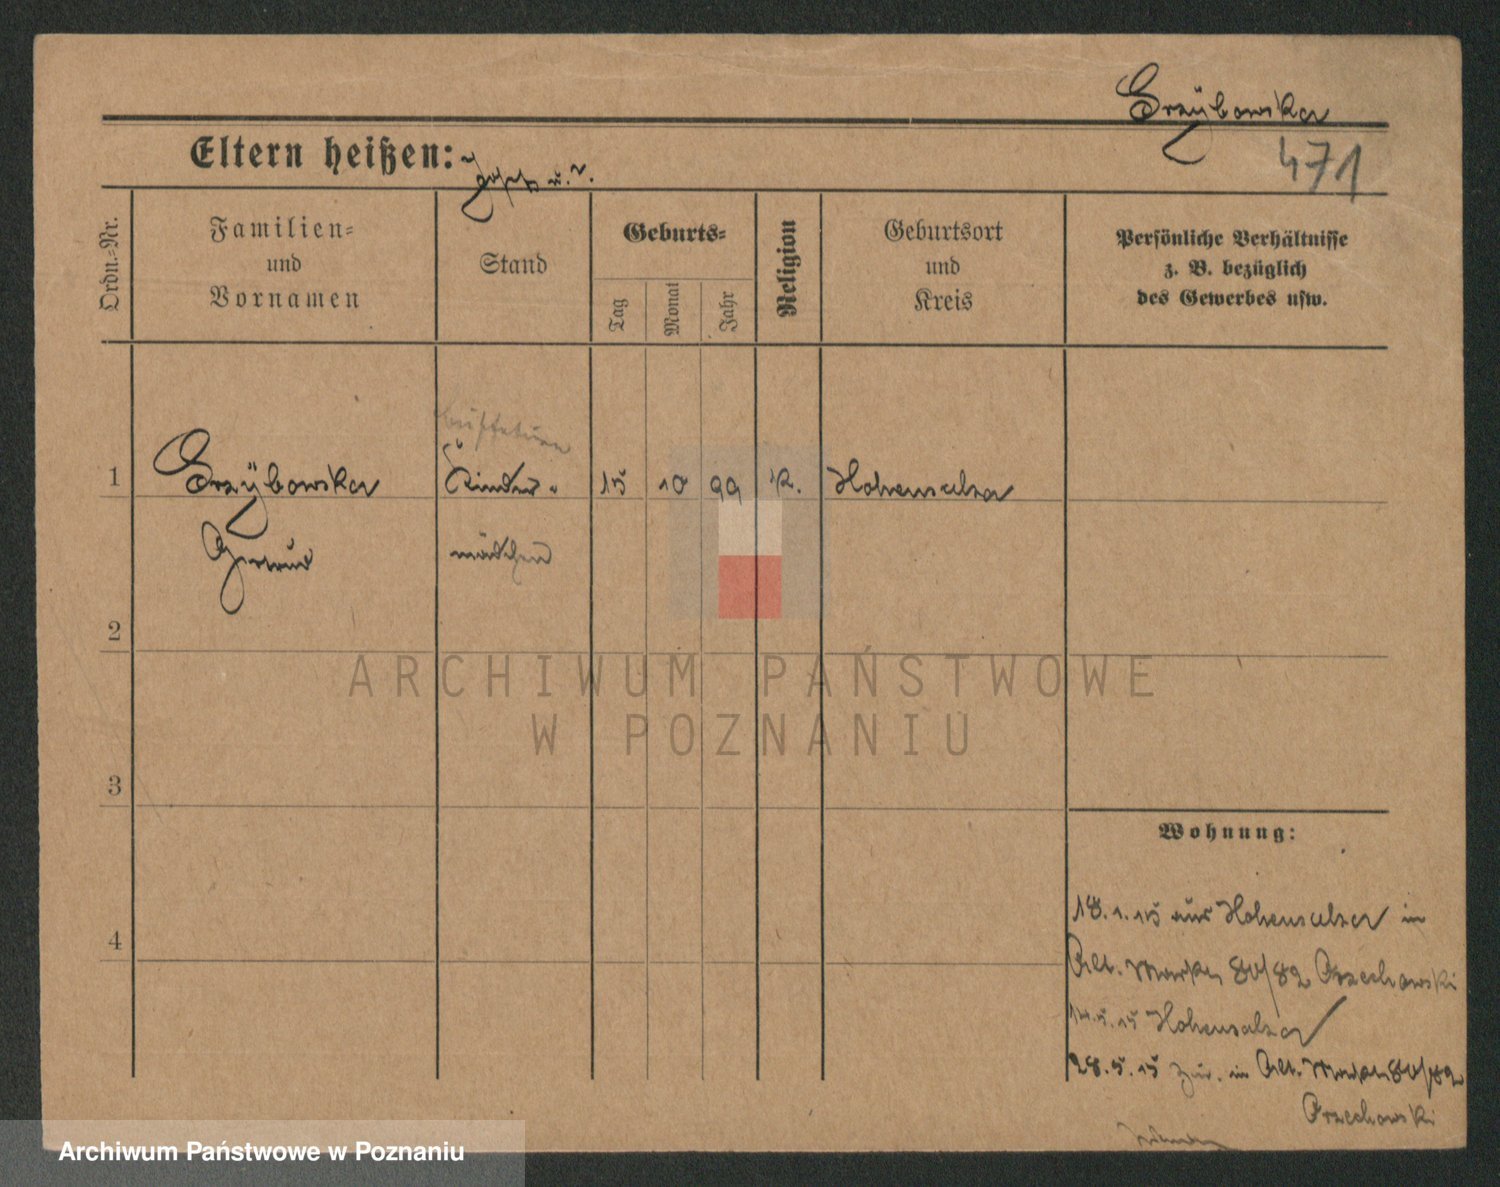 Grzÿbowska
471
Eltern heißen: Josef u. ?.
Ordn.-Nr.
Familien-
und
Vornamen
Stand
Geburts-
Tag
Monat
Jahr
Religion
Geburtsort
und
Kreis
Persönliche Verhältnisse
z. B. bezüglich
des Gewerbes usw.
1
Grzÿbowska
Kinder-
15
10
99
k.
Hohensalza
mädchen
2
ARCHIWUM PAŃSTWOWE
W POZNANIU
3
Wohnung:
18.1.15 aus Hohensalza in
4
Alt. Markt 80/82 Orzechowski
14.5.15 Hohensalza
28.5.15 zur. in Alt. Markt 80/82
Orzechowski
Archiwum Państwowe w Poznaniu